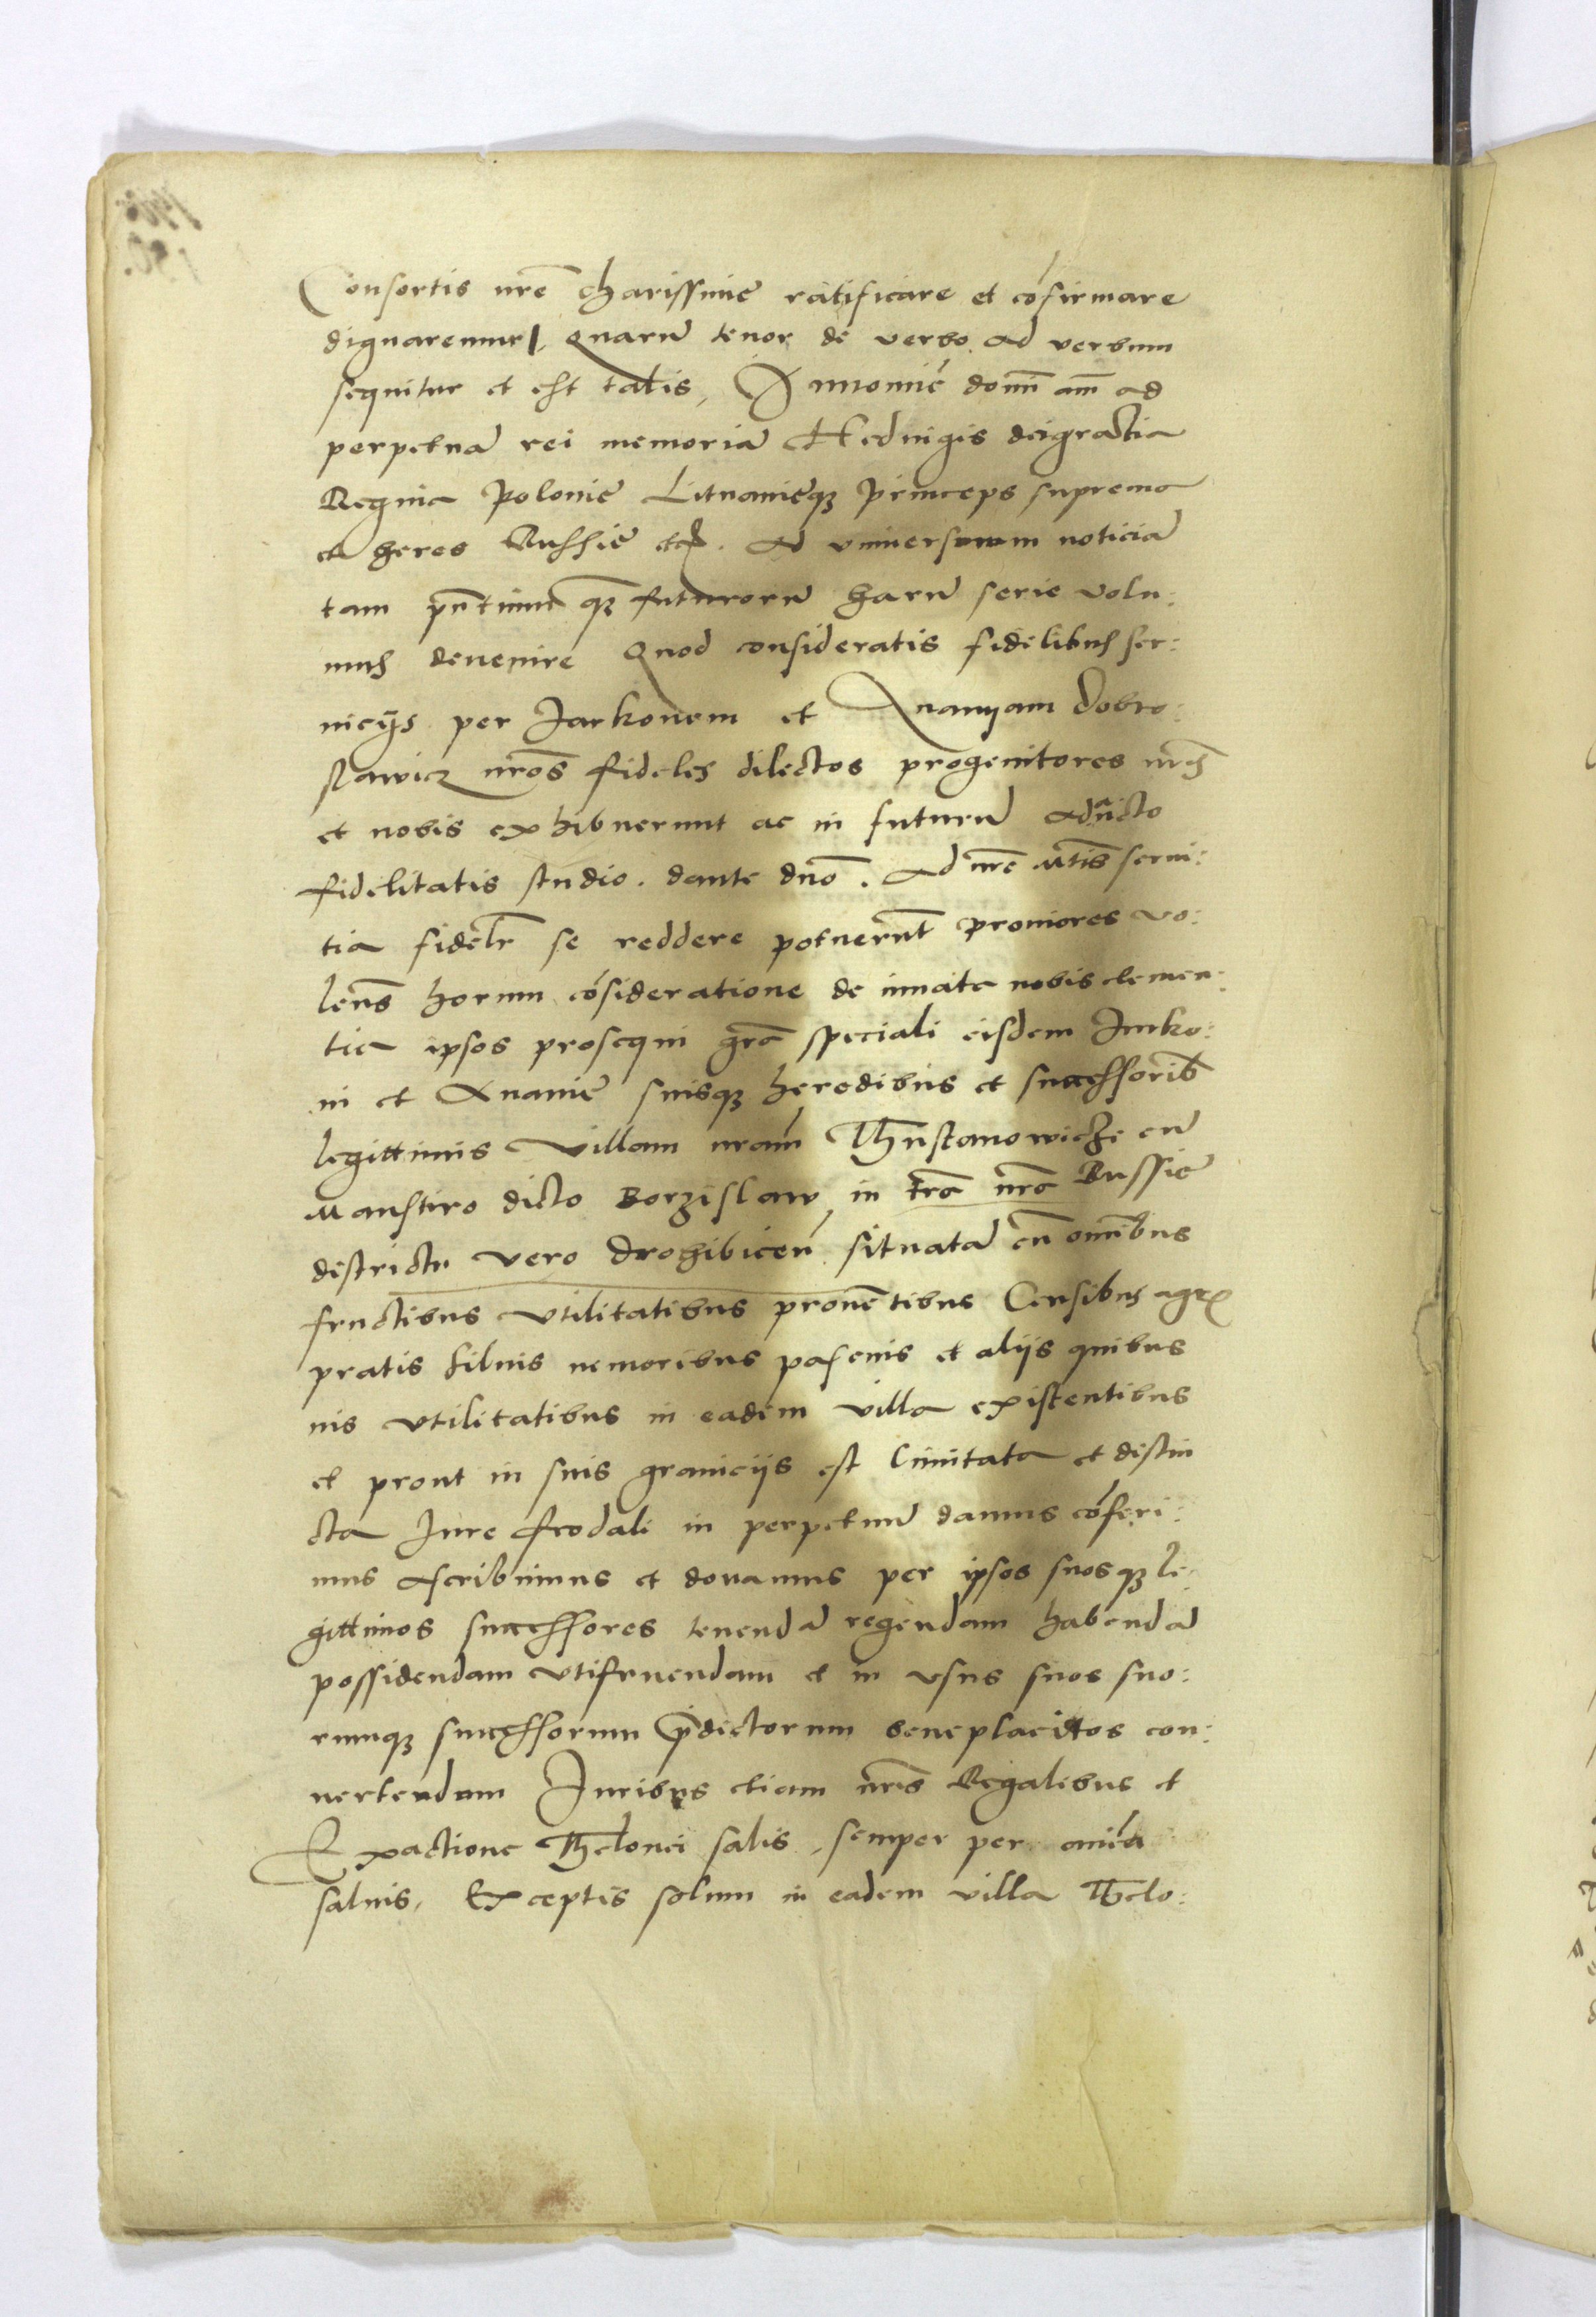 Consortis nrē charissime ratificare et cōfirmare
dignaremur, Quarū tenor de verbo ad verbum
sequitur et est talis, In nomiē domī am̄ ad
perpetuā rei memoriā Heduigis dei gratia
Regina Polonie Lituanieqȝ princeps suprema
et heres Russie etc. Ad vniuersorum noticiā
tam pn̄tium qȝ futurorū harū serie volu:
mus deuenire Quod consideratis fidelibus ser:
uicijs per Jarkonem et Ananyam Dobro:
slawicz nr̄os fideles dilectos progenitores nr̄is
et nobis exhibuerunt ac in futurū adaucto
fidelitatis studio. dante dn̄o. Ad nr̄e Mtis serui:
tia fidelr̄ se reddere potuerūt proniores vo:
lens̄ horum cōsideratione de innata nobis clemen:
tia ipsos prosequi gr̄a speciali eisdem Jurko:
ni et Ananie suisqȝ heredibus et successorib
legittimis Villam nram̄ Thustanowicze cū
Manstiro dicto Borzislaw in tr̄a nr̄a Russie
districtu vero Drohibiceń situatā cū omībus
fructibus vtilitatibus prouētibus Censibus agr
pratis siluis nemoribus pascuis et aliis quibus
uis vtilitatibus in eadem villa existentibus
et prout in suis graniciis est limitata et distin
cta Jure feodali in perpetuū damus cōferi:
mus Ascribimus et donamus per ipsos suosqȝ le:
gittimos successores tenendā regendam habendā
possidendam vtifruendam et in vsus suos suo:
rumqȝ successorum p̄dictorum beneplacitos con:
uertendam Juribus etiam nr̄is Regalibus et
Exactione Thelonei salis, semper per omīa
saluis, Exceptis solum in eadem villa Thelo: